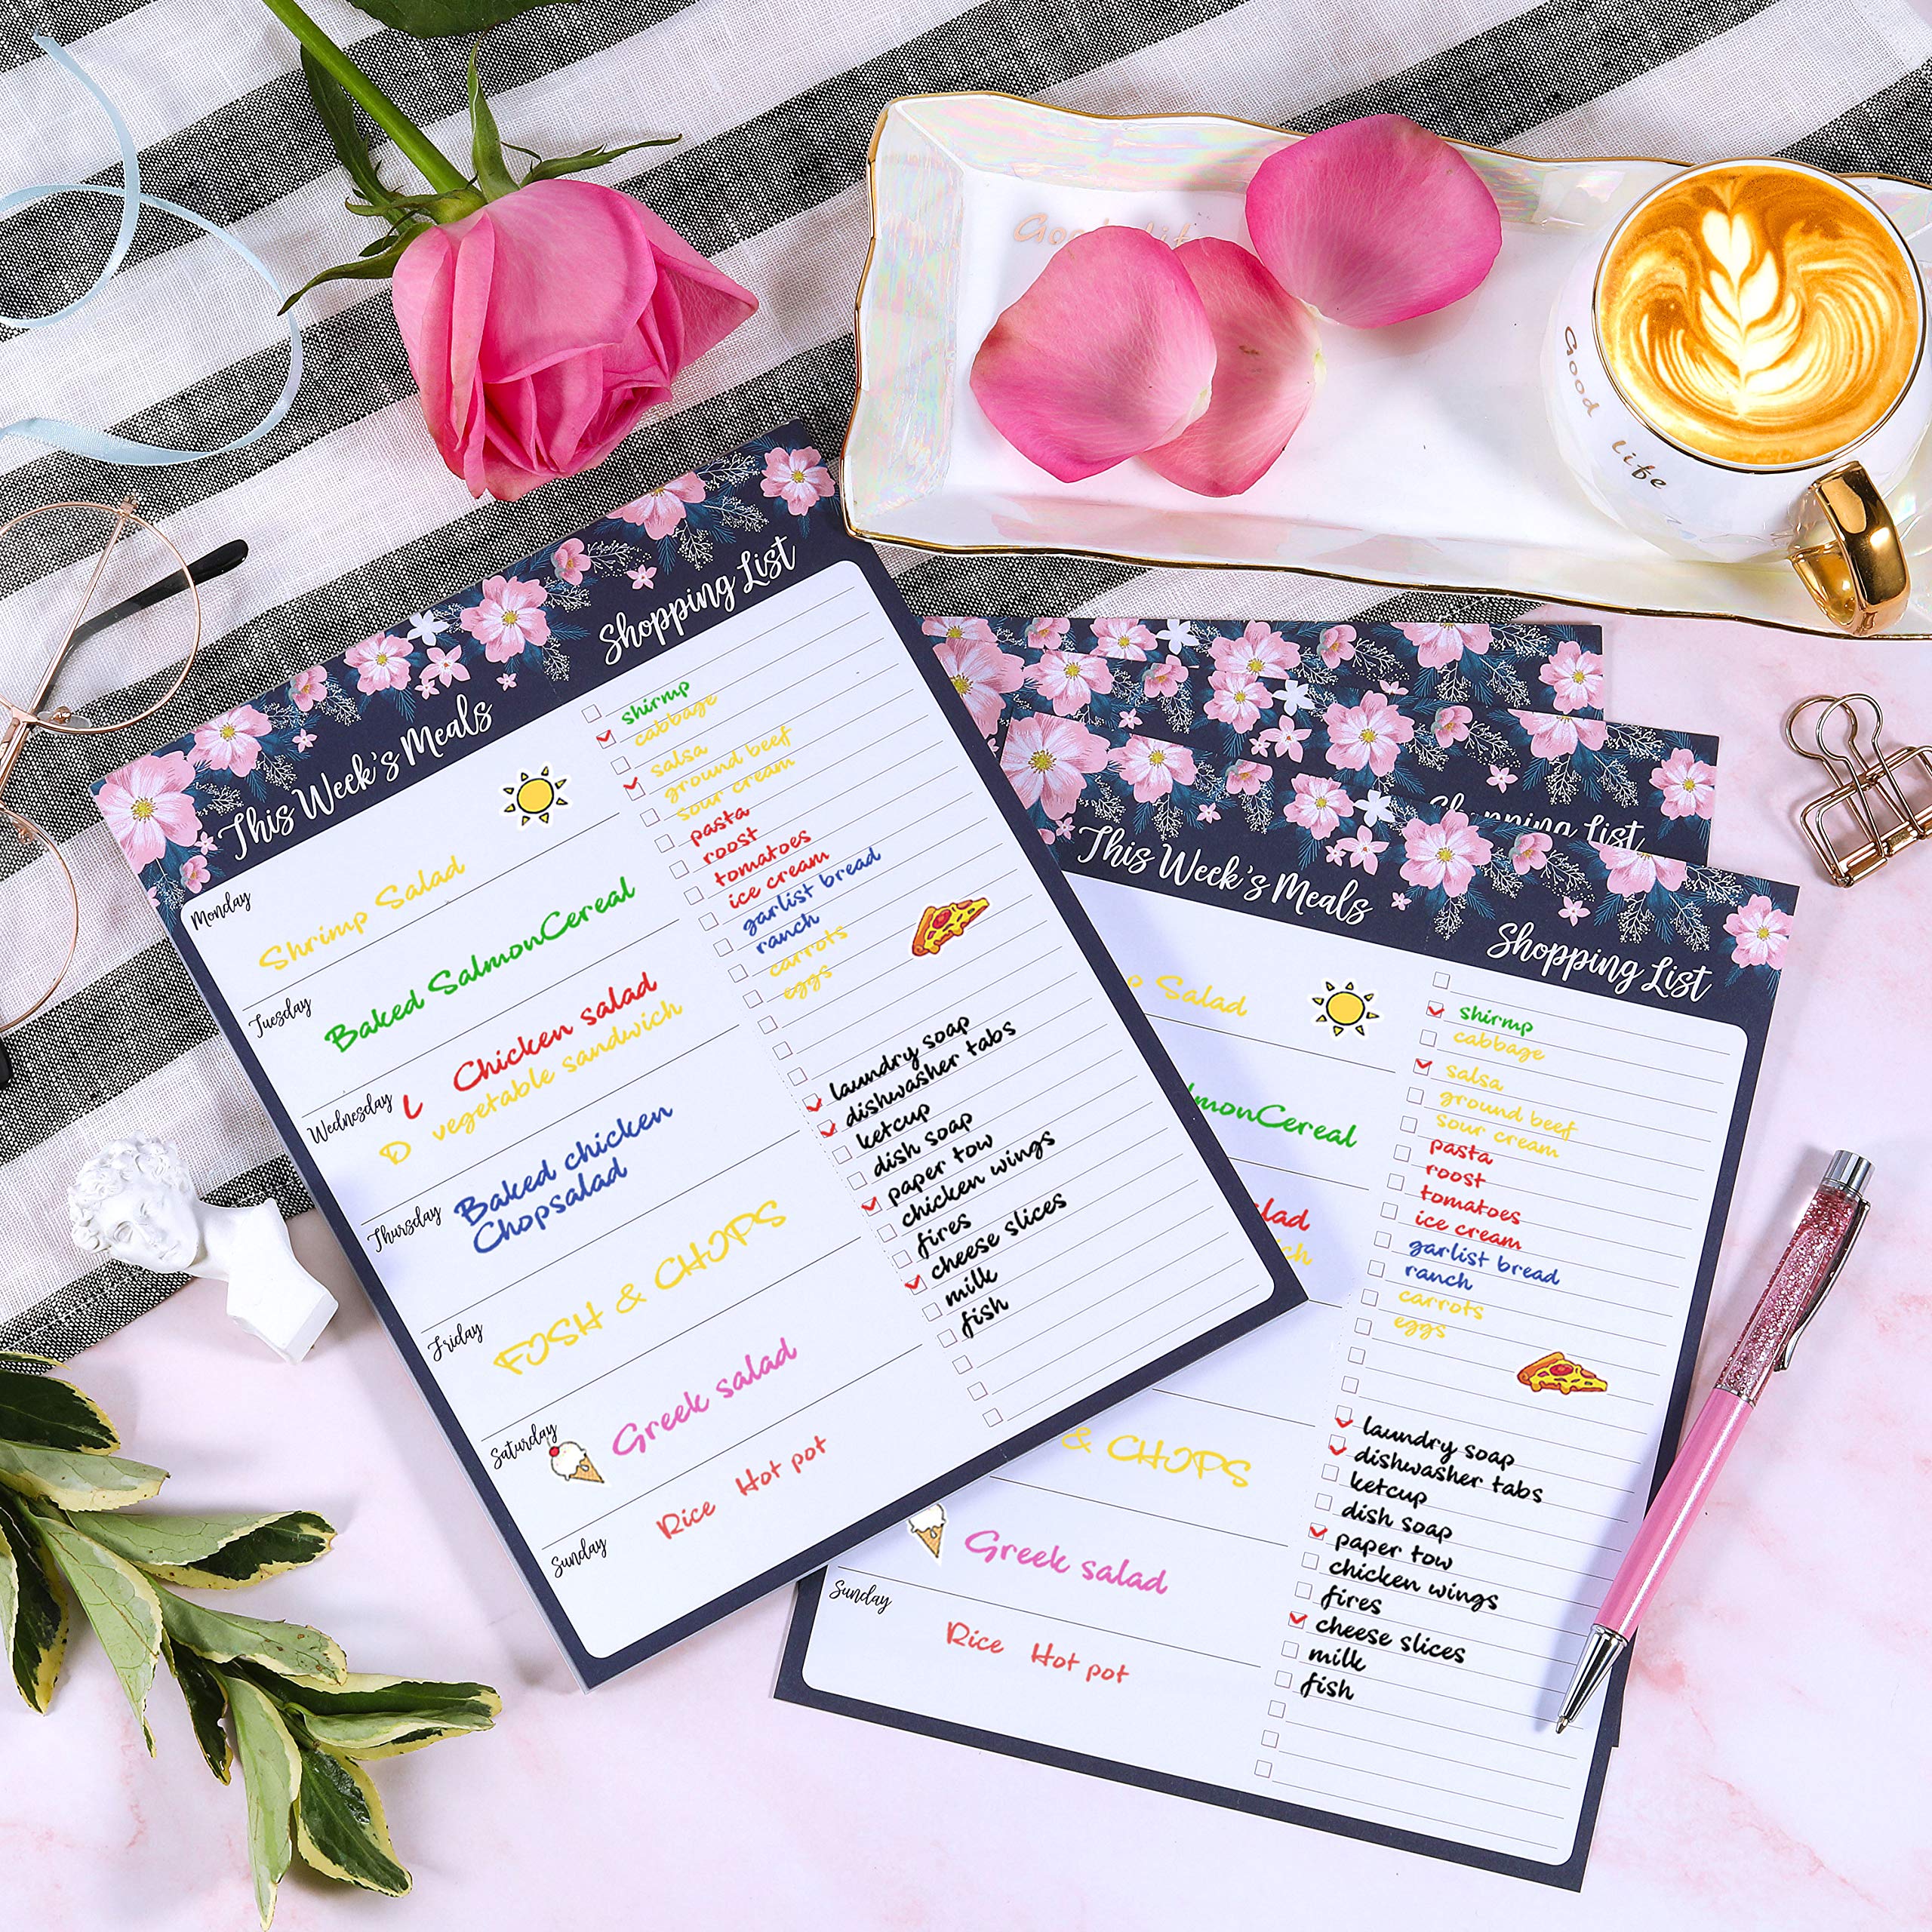 Good Life
Good Life
This Week's Meals
Shopping List
Monday
Shrimp Salad
Tuesday
Baked SalmonCereal
Wednesday
L Chicken salad
D vegetable sandwich
Thursday
Baked chicken
Chopsalad
Friday
FISH & CHIPS
Saturday
Greek salad
Sunday
Rice Hot pot
shirmp
cabbage
salsa
ground beef
sour cream
pasta
roost
tomatoes
ice cream
garlist bread
ranch
carrots
eggs
laundry soap
dishwasher tabs
ketcup
dish soap
paper tow
chicken wings
fires
cheese slices
milk
fish
Shopping List
This Week's Meals
Shopping List
Salad
monCereal
lad
ich
& CHIPS
Greek salad
Sunday
Rice Hot pot
shirmp
cabbage
salsa
ground beef
sour cream
pasta
roost
tomatoes
ice cream
garlist bread
ranch
carrots
eggs
laundry soap
dishwasher tabs
ketcup
dish soap
paper tow
chicken wings
fires
cheese slices
milk
fish